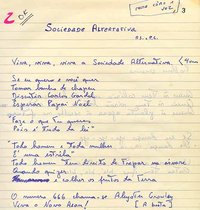 2 OK
3
SOCIEDADE ALTERNATIVA
VIVA, VIVA, VIVA a Sociedade Alternativa
Se eu quero e você quer
Tomar banho de chapéu
Discutir Carlos Gardel
Esperar Papai Noel
"Faze o que tu queres
Pois é tudo da lei"
"Todo homem e toda mulher
é uma estrela
Todo homem tem direito de trepar na árvore
Quando quizer
e colher os frutos da terra
O numero 666 chama-se Aleyster Crowley
Viva o Novo Aeon!